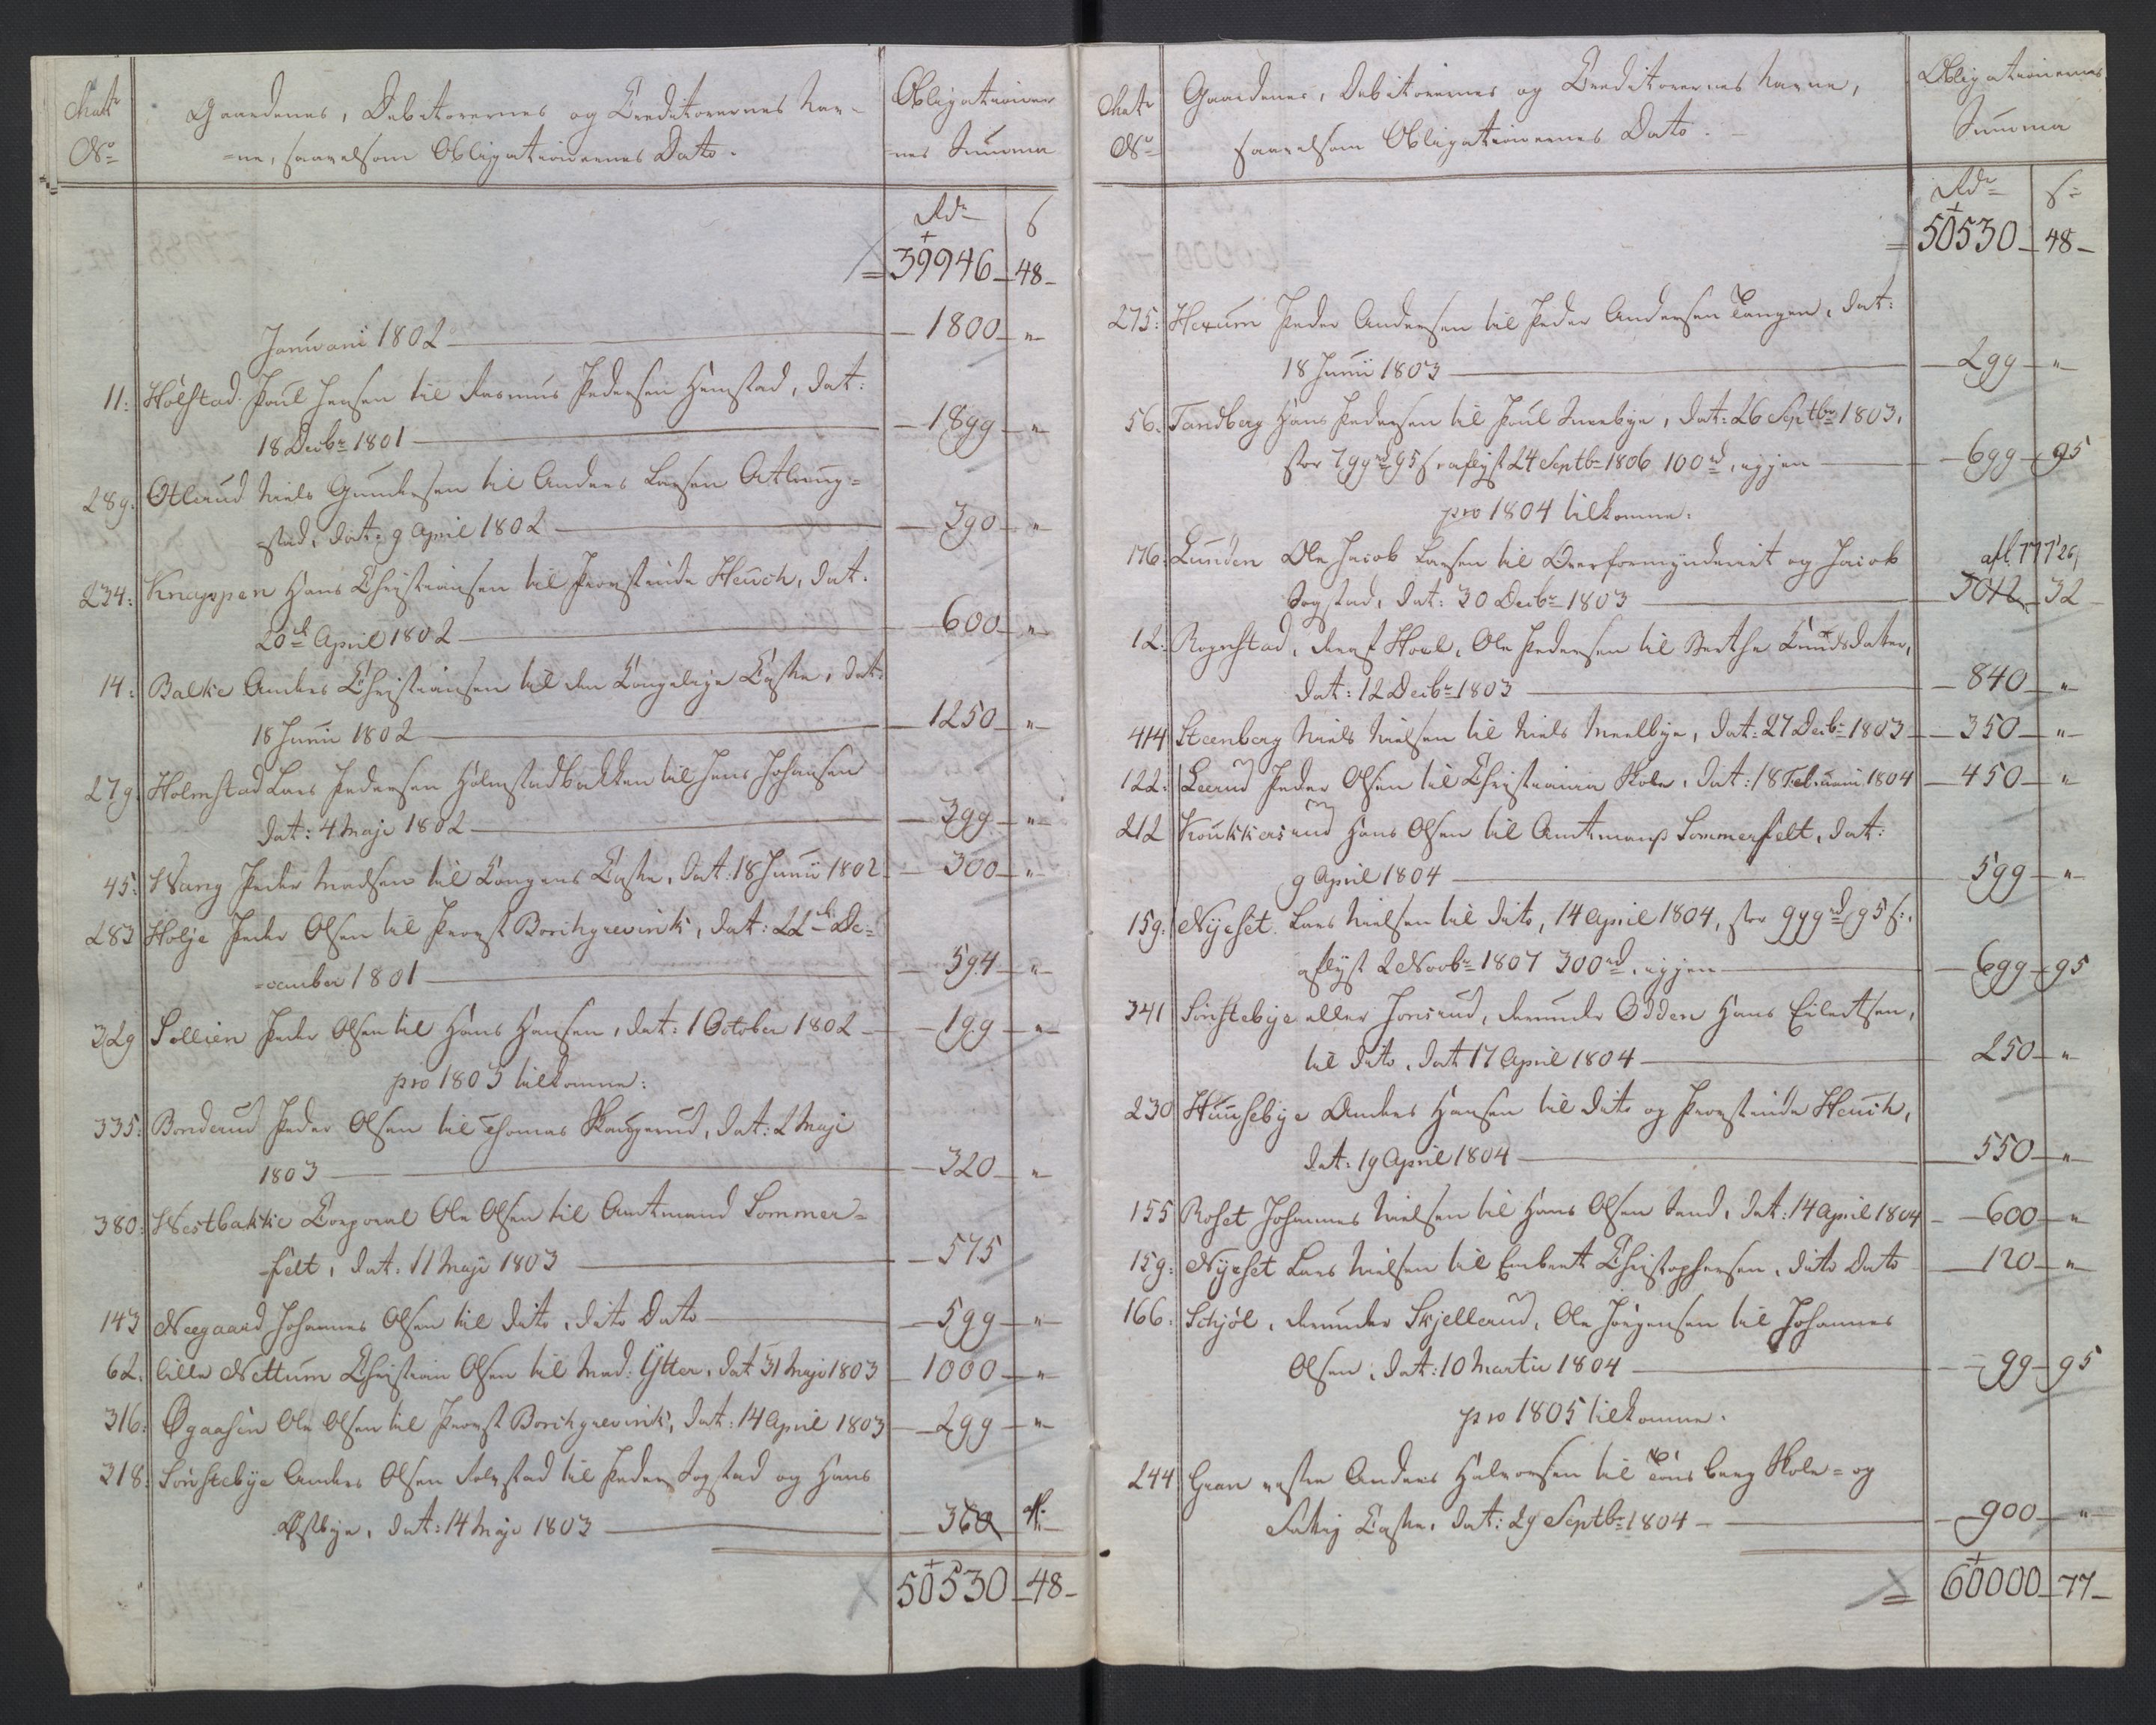 Matr Gaardenes, Debitorernes og Creditorernes Nav- Obligationer
No =ne, saavelsom Obligationernes Dato. =nes Summa
Rdr ß
39946 48
Januarii 1802 1800 "
11: Hölstad Poul Jensen til Rasmus Pedersen Hemstad, dat:
18 Decbr 1801 1899 "
289. Otlaud Niels Gundersen til Anders Larsen Atlung=
stad, dat: 9 April 1802 390 "
234: Knappen Hans Christiansen til Provstinde Heuch, dat.
20de April 1802 600 "
14: Balke Anders Christiansen til den Kongelige Casse, dat:
18 Junii 1802 1250 "
279. Holmstad Lars Pedersen Holmstadbakken til Jens Johansen
dat: 4 Maji 1802 399 "
45: Wang Peder Madsen til Kongens Casse, dat: 18 Junii 1802 300 "
283 Holje Peder Olsen til Provst Borchgrevink, dat: 22de De=
=cember 1801 594 "
329 Sollien Peder Olsen til Hans Hansen, dat: 1 October 1802 199 "
pro 1803 tilkomne:
335: Bonderud Peder Olsen til Thomas Kougerud, dat: 2 Maji
1803 320 "
380: Westbakke Corporal Ole Olsen til Amtmand Sommer=
felt, dat: 11 Maji 1803 575
143 Neegaard Johannes Olsen til dito, dito Dato 599 "
62. lille Nettum Christian Olsen til Mad: Ytter, dat 31 Maji 1803 1000 "
316: Ogaasen Ole Olsen til Provst Borchgrevink, dat: 14 April 1803 299 "
318: Sönstebye Anders Olsen til Peder Sogstad og Hans
Östbye, dat: 14 Maji 1803 360
50530 48
Matr Gaardenes, Debitorernes og Creditorernes Navne, Obligationernes
No saavelsom Obligationernes Dato. Summa
Rdr ß
50530 48
275: Hexum Peder Andersen til Peder Andersen Tangen, dat:
18 Junii 1803 299 "
56. Tandberg Hans Pedersen til Poul Sneebye, dat: 26 Septbr 1803,
stor 799rd 95 ß aflyst 24 Septbr 1806 100rd, igjen 699 95
pro 1804 tilkomne.
176: Lunden Ole Jacob Larsen til Overformynderiet og Jacob afl. 77 7 26
Sogstad, dat: 30 Decbr 1803 3012 32
12. Rognstad, deraf Hoel, Ole Pedersen til Berthe Knudsdatter,
dat: 12 Decbr 1803 840 "
414 Steenberg Niels Nielsen til Niels Meelbye, dat: 27 Decbr 1803 350 "
122: Leerud Peder Olsen til Christiania Skole, dat: 18 Februarii 1804 450 "
212 Koukkersrud Hans Olsen til Amtmand Sommerfelt, dat:
9 April 1804 599 "
159. Nyeset Lars Nielsen til dito, 14 April 1804, stor 999rd 95 ß,
aflyst 2 Novbr 1807 300rd, igjen 699 95
341 Sönstebye eller Jonsrud, derunder Odden Hans Eilertsen,
til dito, dat 17 April 1804 250 "
230 Huusebye Anders Hansen til dito og Provstinde Heuch,
dat: 19 April 1804 550 "
155 Roset Johannes Nielsen til Hans Olsen Sand, dat: 14 April 1804 600 "
159: Nyeset Lars Nielsen til Embret Christophersen, dito Dato 120 "
166: Schjöl, derunder Skjellerud, Ole Jörgensen til Johannes
Olsen, dat: 10 Martii 1804 99 95
pro 1805 tilkomne.
244 Gran vestre Anders Halvorsen til Tönsberg Skole= og
Fattig Casse, dat: 29 Septbr 1804 900 "
60000 77